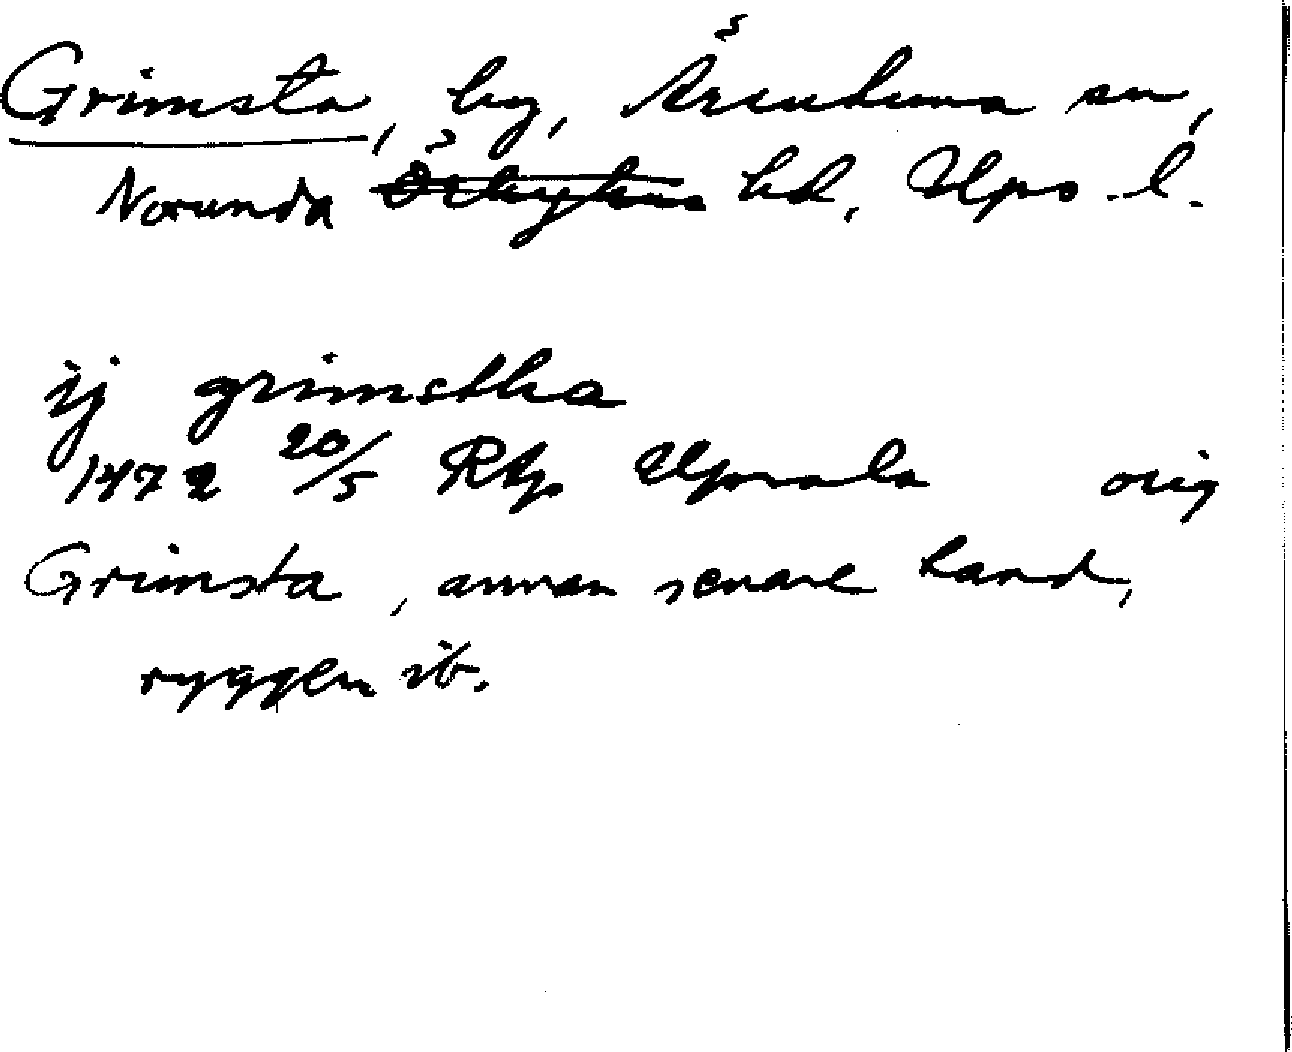 Grimsta, by, Ärentuna sn,
Norunda hd, Upps. l.
ij grimstha
1472 20/5 Rkp Uppsala orig
Grimsta, annan senare hand,
ryggen ib.